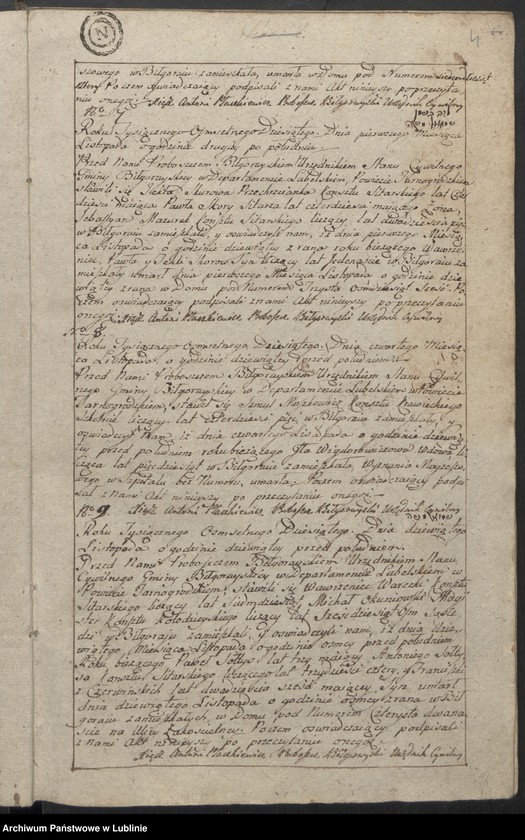 N
4
szowego w Biłgoraju zamieszkała, umarła w Domu pod Numerem
cztery Poczem oświadczaiący podpisali z nami Akt ninieyszy po przeczyta-
niu onegoż. Xiądz Antoni Płachkiewicz Proboszcz Biłgorayski Urzędnik Cywilny
Nro 7
Roku Tysiącznego Osmsetnego Dziesiątego. Dnia pierwszego Miesiąca
Listopada o godzinie drugiey po południu.
Przed Nami Proboszczem Biłgorayskim Urzędnikiem Stanu Cywilnego
Gminy Biłgorayskiey w Departamencie Lubelskim, Powiecie Tarnogrodzkim
stawili się Tekla Kunszta Sitarskiego lat
dziesci maiąca Pawła Skory Sitarza lat czterdziesci maiącego Żona,
Sebastyan Mazurek Konsztu Sitarskiego liczący lat dwadziescia pięć
w Biłgoraiu zamieszkali, y oświadczyli nam, iż dnia pierwszego Miesią-
ca Listopada o godzinie dziewiątey z rana roku bieżącego Wawrze-
niec, Pawła y Tekli Skorow Syn liczący lat Jedenascie w Biłgoraiu za-
mieszkały umarł dnia pierwszego Miesiąca Listopada o godzinie dzie-
wiątey z rana w Domu pod Numerem Trzysta Osmdziesiąt Sześć. Po-
czem oświadczaiący podpisali z nami Akt ninieyszy po przeczytaniu
onegoż. Xiądz Antoni Płachkiewicz Proboszcz Biłgorayski Urzędnik Cywilny
Nro 8.
Roku Tysiącznego Osmsetnego Dziesiątego. Dnia czwartego Miesią-
ca Listopada, o godzinie dziewiątey przed południem.
Przed Nami Proboszczem Biłgorayskim Urzędnikiem Stanu Cywil-
nego Gminy Biłgorayskiey w Departamencie Lubelskim w Powiecie
Tarnogrodzkim, stawił się Szmul Moszkowicz Konsztu Krawieckiego
Szkolnik liczący lat Czterdziesci pięć, w Biłgoraiu zamieszkały, y
oświadczył Nam, iż dnia czwartego Listopada o godzinie dziewią-
tey przed południem roku bieżącego Wdowa li-
cząca lat pięćdziesiąt w Biłgoraiu zamieszkała, Wyznania Moyżeszo-
wego w Szpitalu bez Numeru, umarła. Poczem oświadczaiący podpi-
sał z nami Akt ninieyszy po przeczytaniu onegoż.
Xiądz Antoni Płachkiewicz Proboszcz Biłgorayski Urzędnik Cywilny
Nro 9.
Roku Tysiącznego Osmsetnego Dziesiątego. Dnia dziewiątego
Listopada o godzinie dziewiątey przed południem.
Przed Nami Proboszczem Biłgorayskim Urzędnikiem Stanu
Cywilnego Gminy Biłgorayskiey w Departamencie Lubelskim w
Powiecie Tarnogrodzkim, stawili się Wawrzeniec Warecki Konsztu
Sitarskiego liczący lat Michał
Konsztu Kołodzieyskiego liczący lat Sześćdziesiąt Ośm Sąsie-
dzi w Biłgoraiu zamieszkali, y oświadczyli nam, iż dnia dzie-
wiątego Miesiąca Listopada o godzinie osmey przed południem
Roku bieżącego Paweł Sołtys lat trzy maiący Antoniego Sołty-
sa Konsztu Sitarskiego liczącego lat trzydzieści cztery, y Franciszki
z Czerwińskich lat dwadzieścia sześć maiącey Syn, umarł
dnia dziewiątego Listopada o godzinie osmey z rana w Bił-
goraiu zamieszkałych, w Domu pod Numerem Czterysta dwana-
ście na Ulicy Zakościelney. Poczem oświadczaiący podpisali
z nami Akt ninieyszy po przeczytaniu onegoż.
Xiądz Antoni Płachkiewicz Proboszcz Biłgorayski Urzędnik Cywilny
Archiwum Państwowe w Lublinie